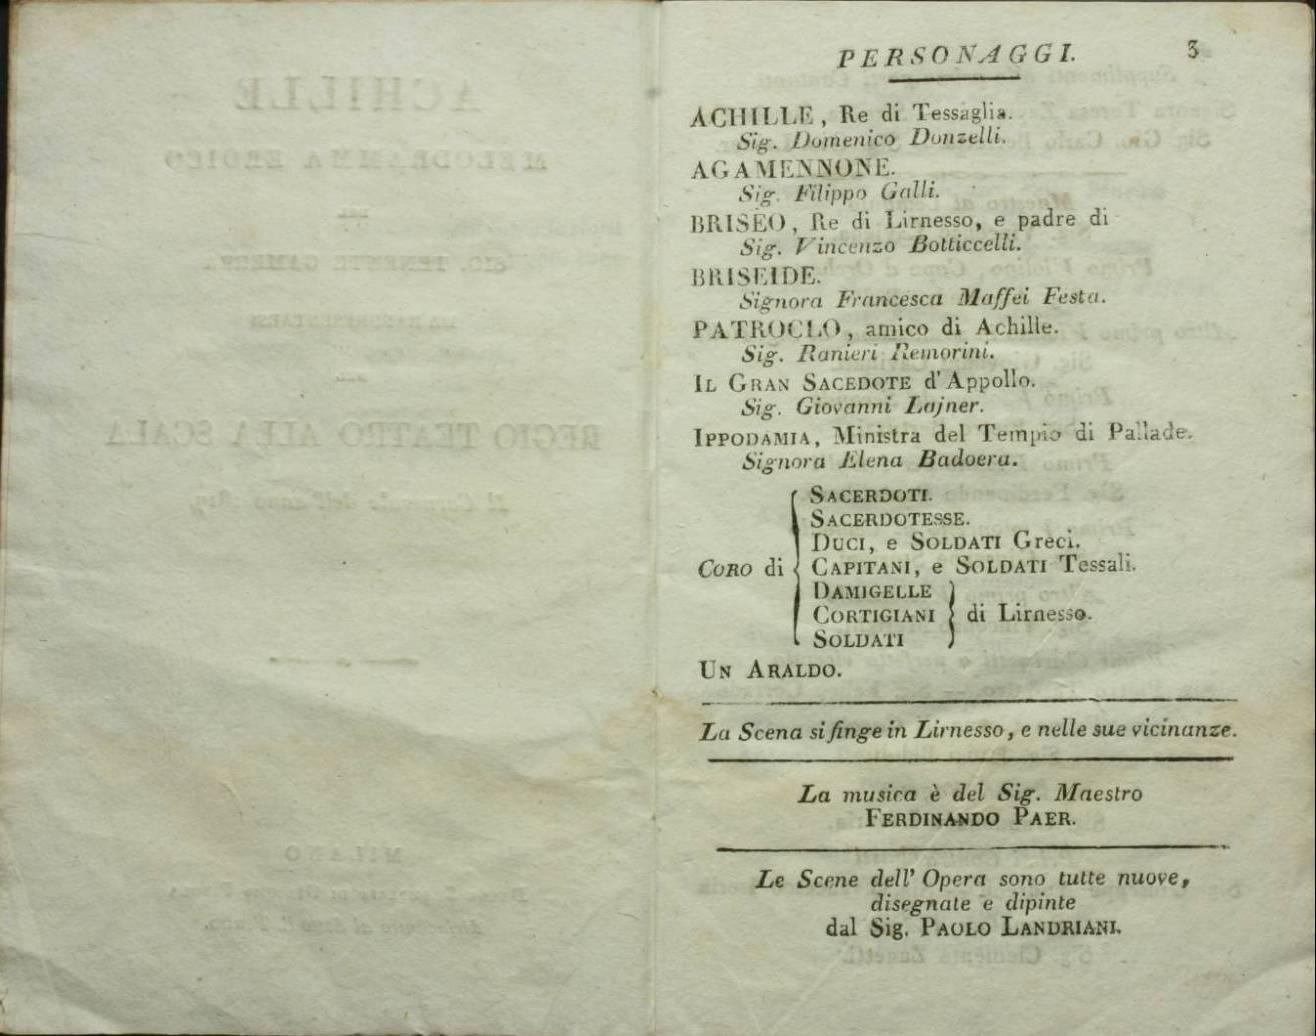 PERSONAGGI. 3
ACHILLE, Re di Tessaglia.
Sig. Domenico Donzelli.
AGAMENNONE.
Sig. Filippo Galli.
BRISEO, Re di Lirnesso, e padre di
Sig. Vincenzo Botticcelli.
BRISEIDE.
Signora Francesca Maffei Festa.
PATROCLO, amico di Achille.
Sig. Ranieri Remorini.
IL GRAN SACEDOTE d'Appollo.
Sig. Giovanni Lajner.
IPPODAMIA, Ministra del Tempio di Pallade.
Signora Elena Badoera.
CORO di
SACERDOTI.
SACERDOTESSE.
DUCI, e SOLDATI Greci.
CAPITANI, e SOLDATI Tessali.
DAMIGELLE
CORTIGIANI di Lirnesso.
SOLDATI
UN ARALDO.
La Scena si finge in Lirnesso, e nelle sue vicinanze.
La musica è del Sig. Maestro
FERDINANDO PAER.
Le Scene dell' Opera sono tutte nuove,
disegnate e dipinte
dal Sig. PAOLO LANDRIANI.